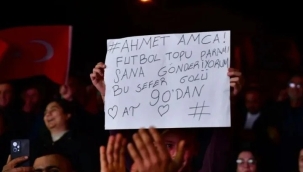 #AHMET AMCA!
FUTBOL TOPU PARAMI
SANA GÖNDERİYORUM
BU SEFER GOLÜ
♡ 90'DAN
AT ♡ #